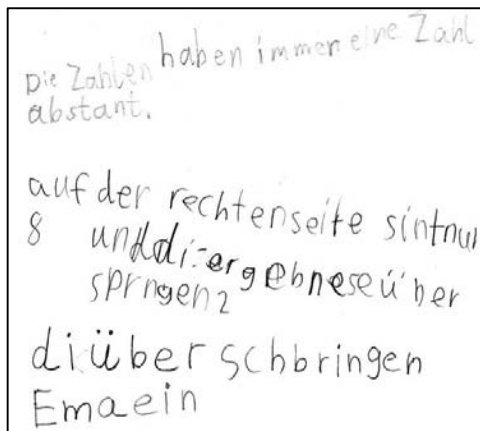 Die Zahlen haben immer eine Zahl
abstant.
auf der rechtenseite sintnur
8 unddi ergebneseüber
sprngen 2
diüber schbringen
Emaein